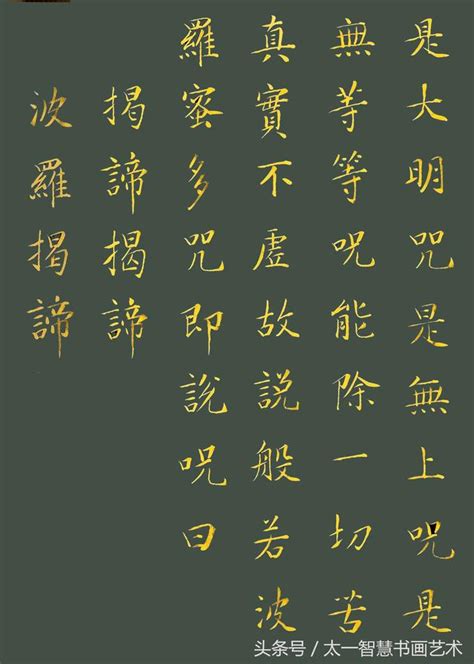 是大明咒是無上呪是
無等等呪能除一切苦
真實不虛故說般若波
羅蜜多咒即說呪曰
揭諦揭諦
波羅揭諦
头条号/太一智慧书画艺术